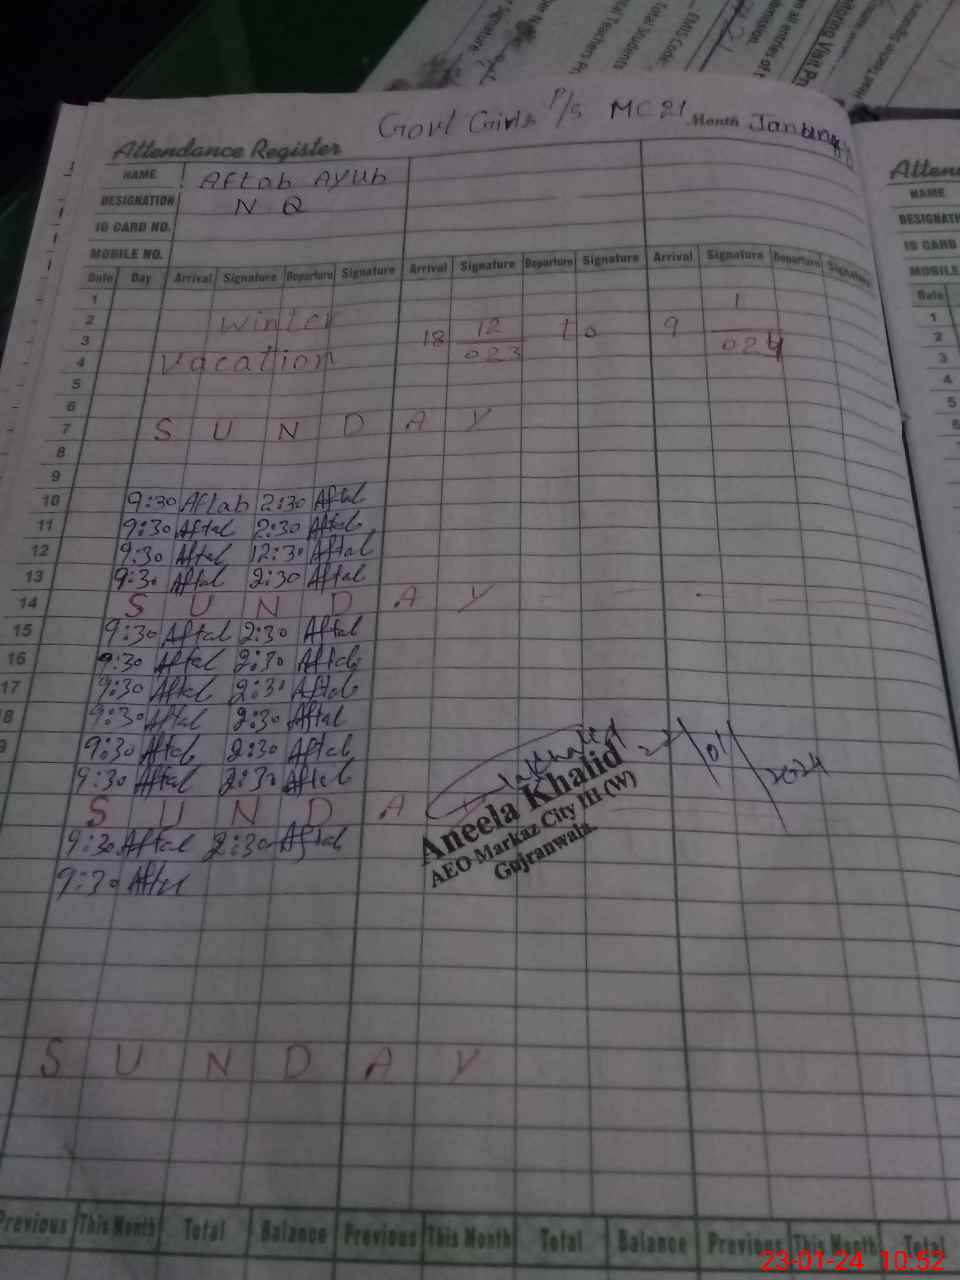 Govt Girls P/S MC 21 Month January
Attendance Register
NAME Aftab Ayub
DESIGNATION N Q
ID CARD NO.
MOBILE NO.
Date Day Arrival Signature Departure Signature Arrival Signature Departure Signature Arrival Signature Departure Signature
1
2 Winter 18 12 to 9 1
3 023 024
4 Vacation
5
6
7 S U N D A Y
8
9
10 9:30 Aftab 2:30 Aftab
11 9:30 Aftab 2:30 Aftab
12 9:30 Aftab 12:30 Aftab
13 9:30 Aftab 2:30 Aftab
14 S U N D A Y
15 9:30 Aftab 2:30 Aftab
16 9:30 Aftab 2:30 Aftab
17 9:30 Aftab 2:30 Aftab
8 9:30 Aftab 2:30 Aftab
9 9:30 Aftab 2:30 Aftab
9:30 Aftab 2:30 Aftab
S U N D A Y
9:30 Aftab 2:30 Aftab
9:30 Aftab
01/2024
Aneela Khalid
AEO Markaz City III (W)
Gujranwala.
S U N D A Y
Previous This Month Total Balance Previous This Month Total Balance Previous This Month Total
NAME
ID CARD
MOBILE
Date
1
2
3
4
5
6
23-01-24 10:52